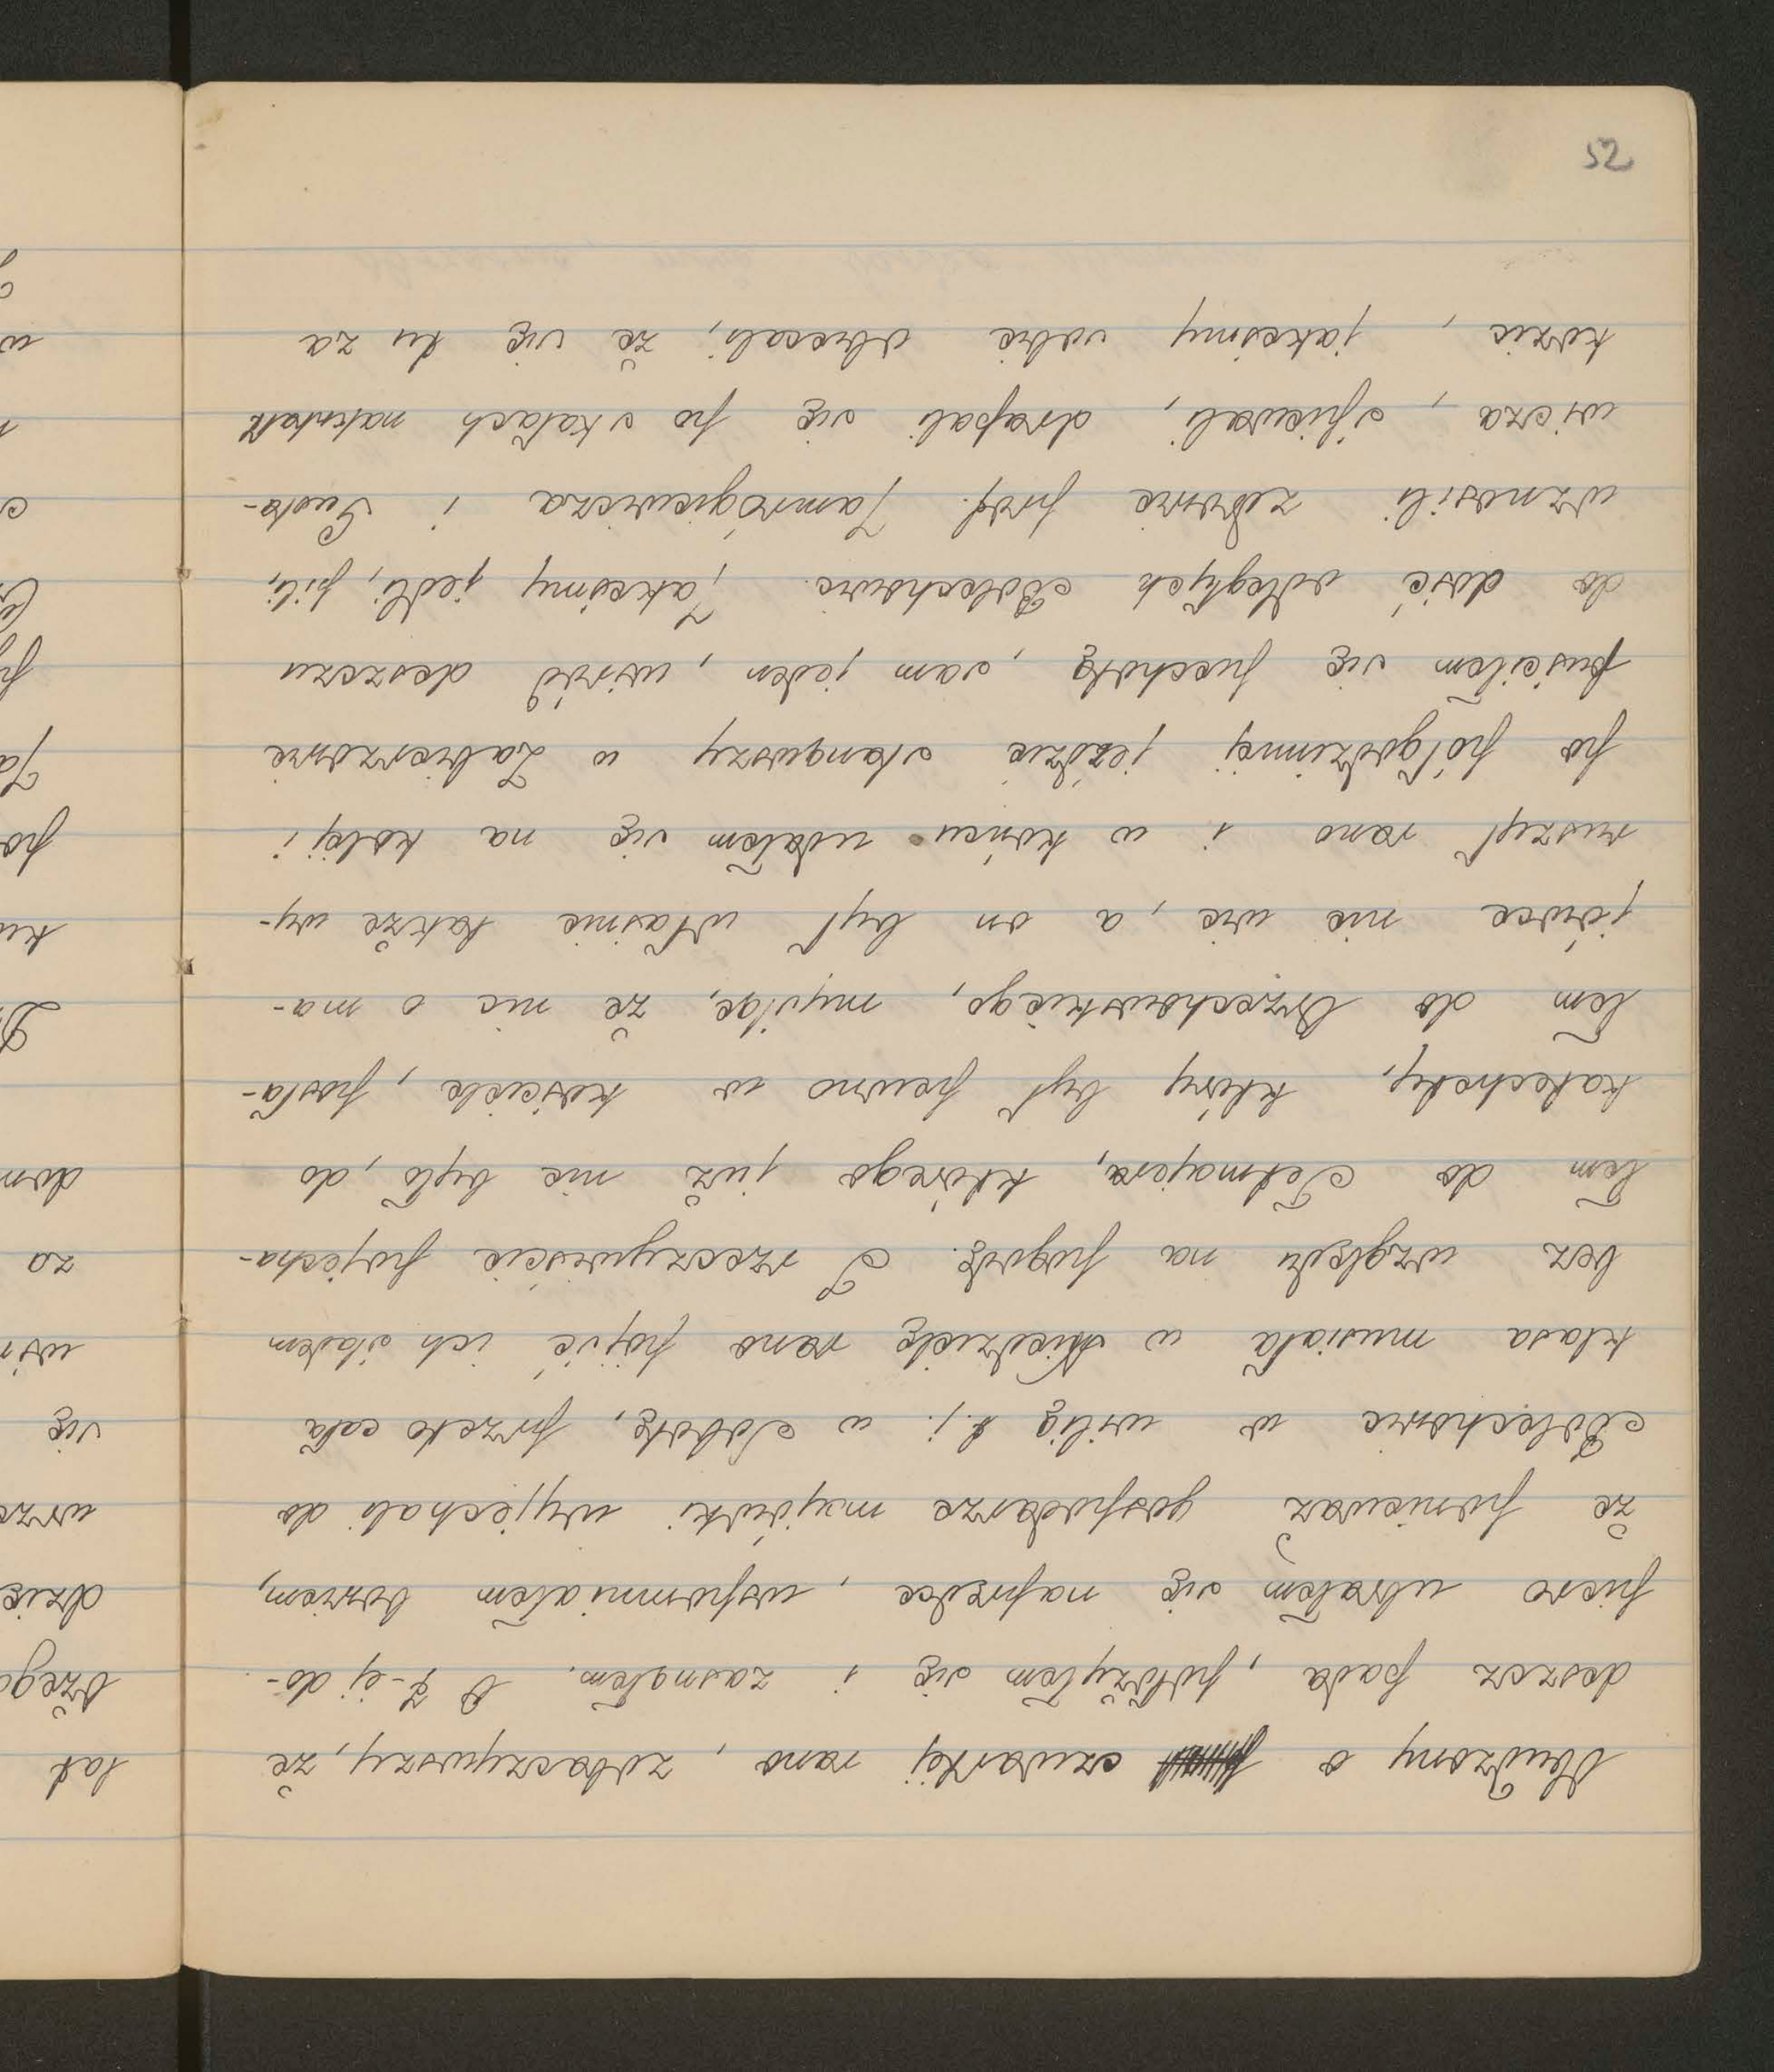 52
Obudzony o czwartej rano, zobaczywszy, że
deszcz pada, położyłem się i zasnąłem. O 7-ej do-
piero ubrałem się naprędce, wspomniałem bowiem,
że ponieważ gospodarze majówki wyjechali do
Bolechowic w wilię t.j. w Sobotę, przeto cała
klasa musiała w Niedzielę rano pójść ich śladem
bez względu na pogodę. I rzeczywiście pojecha-
łem do Tetmajera, którego już nie było, do
katechety, który był pewno w kościele, posła-
łem do Orzechowskiego, myśląc, że nic o ma-
jówce nie wie, a on był właśnie także wy-
ruszył rano i w końcu udałem się na kolej i
po półgodzinnej jeździe stanąwszy w Zabierzowie
puściłem się piechotą, sam jeden, wśród deszczu
do dość odległych Bolechowic. Jakeśmy jedli, pili,
wznosili zdrowie prof. Jamrógiewicza i Gusta-
wicza, śpiewali, drapali się po skałach nakształt
kozic, jakeśmy sobie obiecali, że się tu za
lat
drze
wrze
się
za